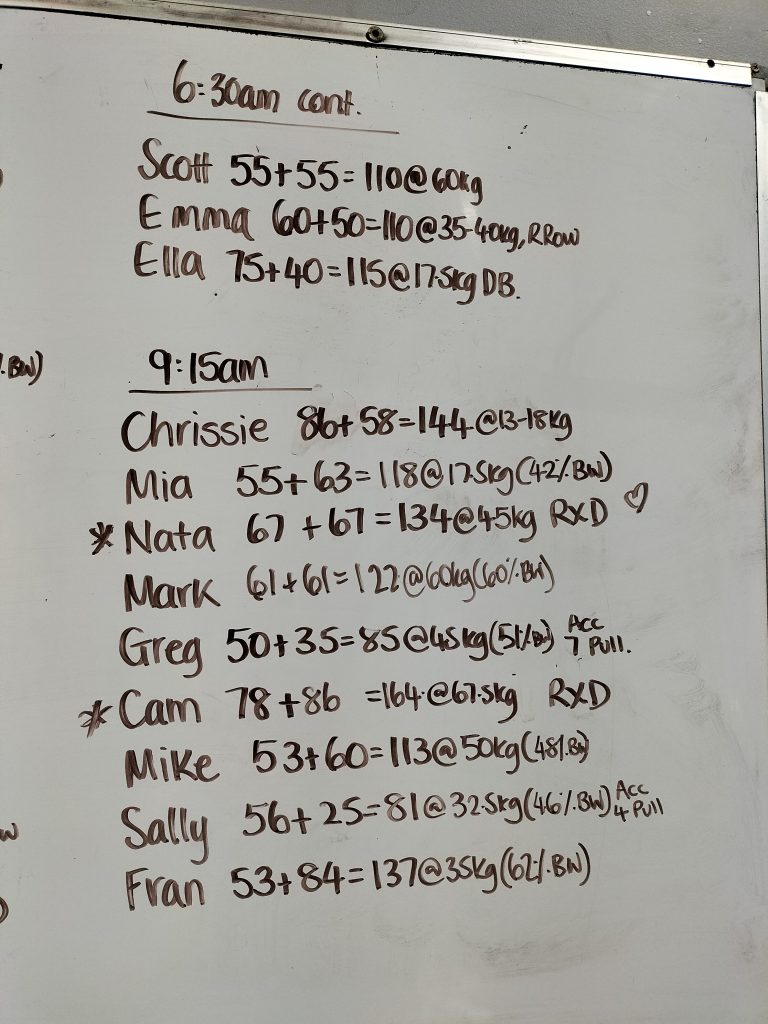 6:30am cont.
Scott 55+55=110@60kg
Emma 60+50=110@35-40kg, RRow
Ella 75+40=115@17.5kg DB.
.BW)
9:15am
Chrissie 86+58=144@13-18kg
Mia 55+63=118@17.5kg(42%BW)
* Nata 67+67=134@45kg RXD ♡
Mark 61+61=122@60kg(60%BW)
Greg 50+35=85@45kg(51%BW) Acc 7 Pull.
* Cam 78+86=164@67.5kg RXD
Mike 53+60=113@50kg(48%BW)
Sally 56+25=81@32.5kg(46%BW) Acc 4 Pull
Fran 53+84=137@35kg(62%BW)